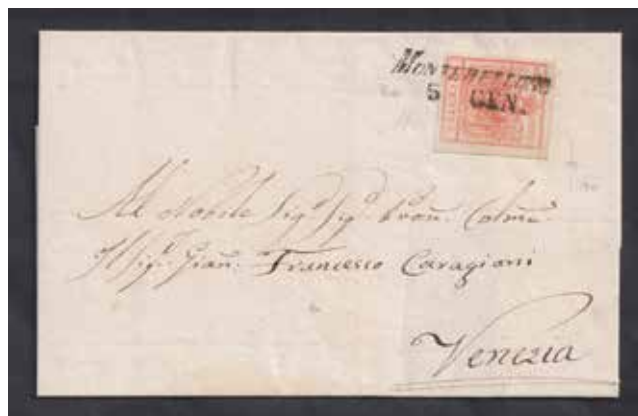 MONTEBELLUNA
5 GEN.
Al Nobile Sigr Sigr
Il Sigr Gian. Francesco Caragiani
Venezia